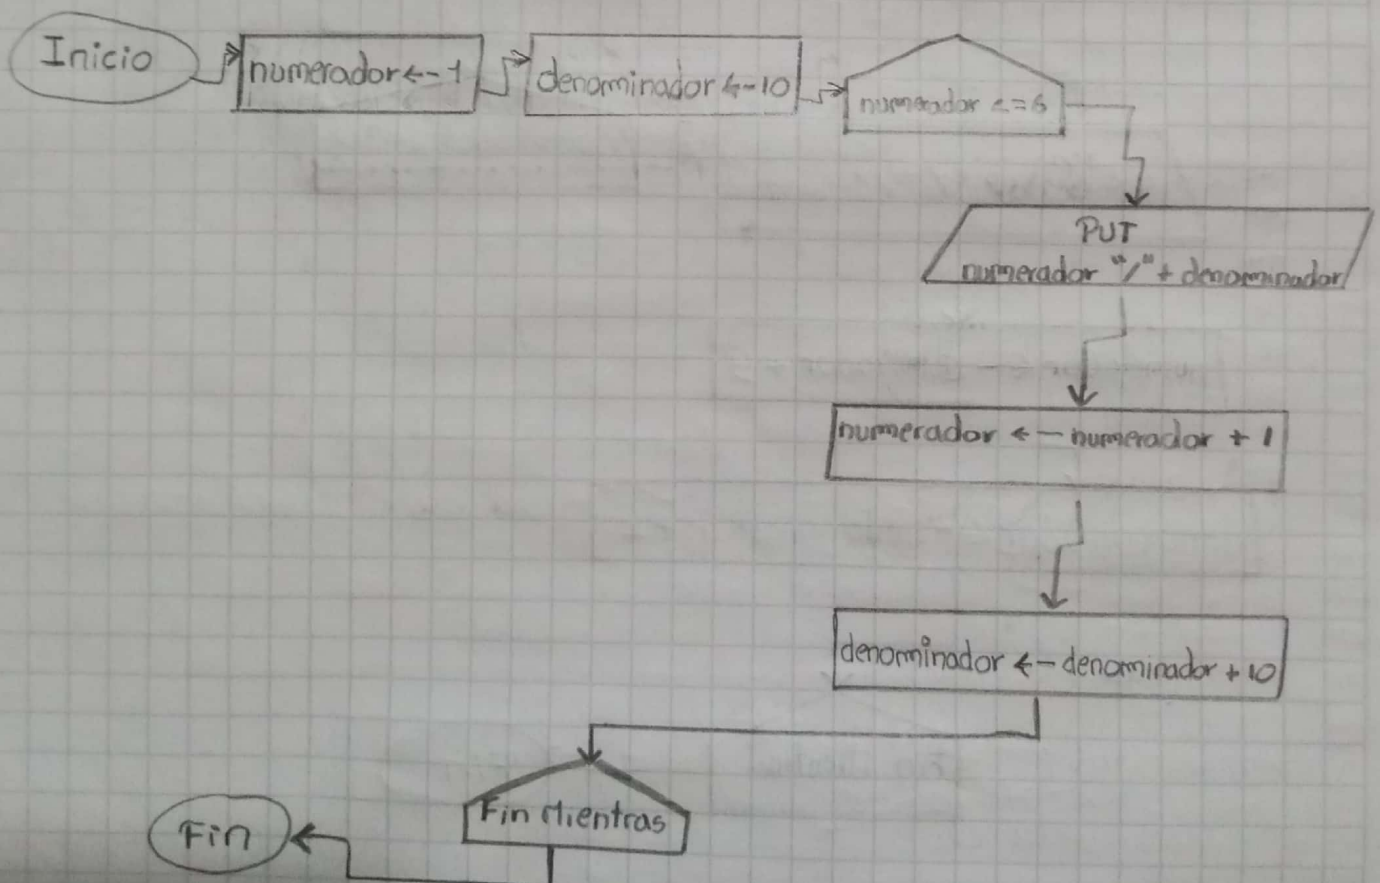 Inicio
numerador ←- 1
denominador ←- 10
numerador <=
PUT
numerador "/" + denominador
numerador ←- numerador + 1
denominador ←- denominador + 10
Fin Mientras
Fin